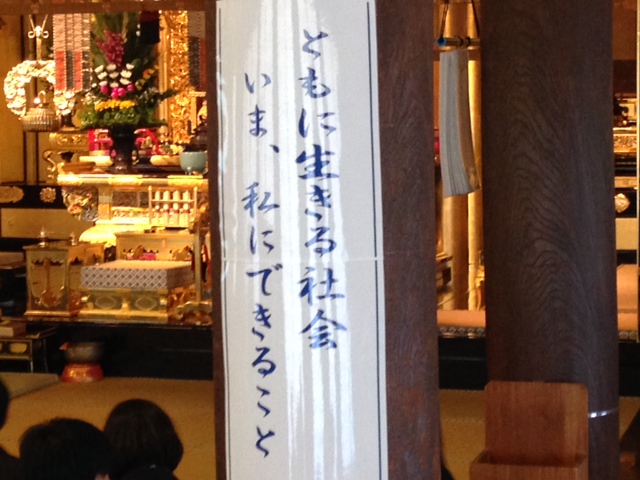 ともに生きる社会
いま、私にできること